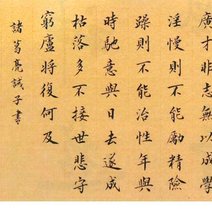 廣才非志無以成學
淫慢則不能勵精險
躁則不能治性年與
時馳意與日去遂成
枯落多不接世悲守
窮廬將復何及
諸葛亮誡子書